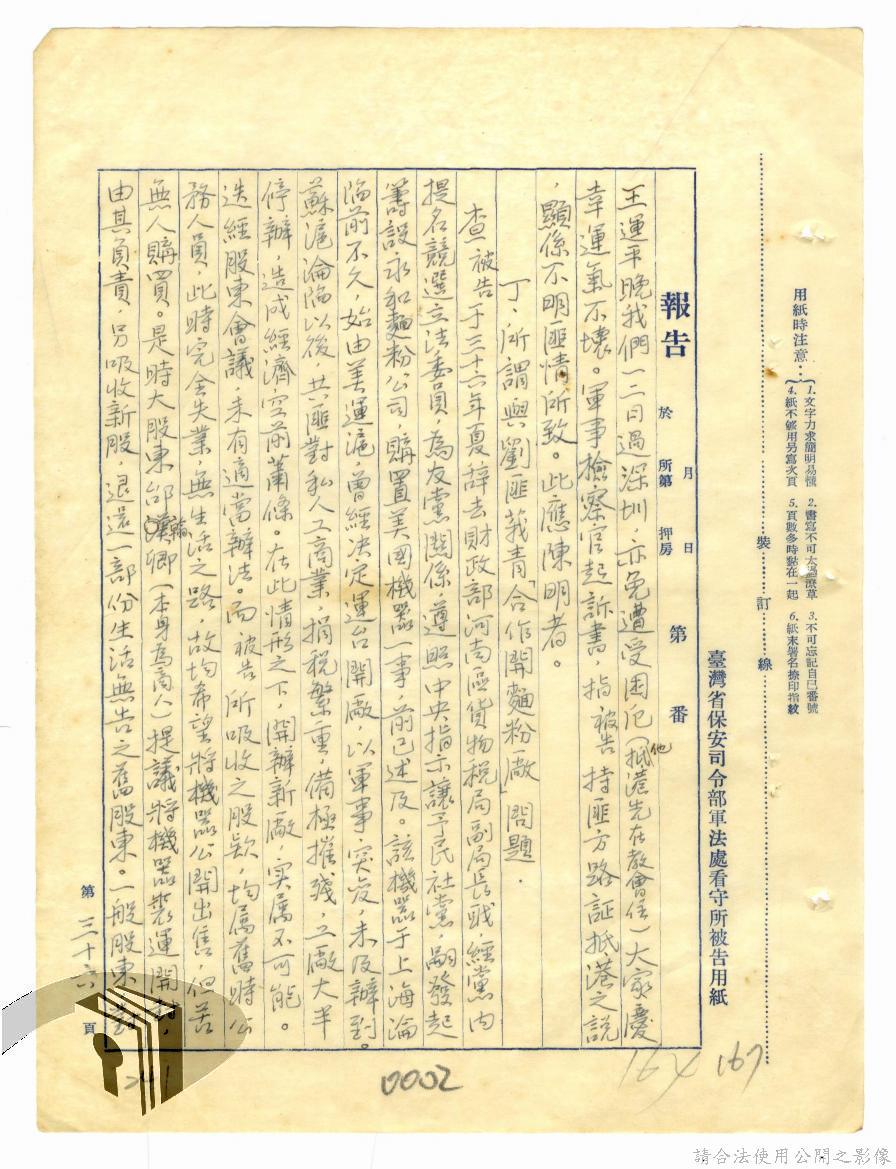 用紙時注意：
1.文字力求簡明易懂 2.書寫不可太過潦草 3.不可忘記自己番號
4.紙不够用另寫次頁 5.頁數多時黏在一起 6.紙末署名捺印指紋
裝訂線
臺灣省保安司令部軍法處看守所被告用紙
報告 於 月 日 所第 押房 第 番
王運平晚我們一二日過深圳，亦免遭受困厄（他抵港先在教會住）大家慶
幸運氣不壞。軍事檢察官起訴書，指被告持匪方路証抵港之說
，顯係不明匪情所致。此應陳明者。
丁、所謂與劉匪莪青「合作開麵粉廠」問題．
查被告于三十六年夏辞去財政部河南區貨物稅局副局長職，經黨内
提名競選立法委員，為友黨關係，遵照中央指示讓予民社黨，嗣發起
籌設永和麵粉公司，購置美國機器一事，前已述及。該機器于上海淪
陷前不久，始由美運滬，曾經决定運台開廠，以軍事突変，未及辦到。
蘇滬淪陷以後，共匪對私人工商業，捐税繁重，備極摧殘，工廠大半
停辦，造成經濟空前蕭條。在此情形之下，開辦新廠，実属不可能。
迭經股東會議未有適當辦法。而被告所吸收之股欵，均屬舊時公
務人員，此時完全失業，無生活之路，故均希望將機器公開出售，但苦
無人購買。是時大股東邰輪卿（本身為商人）提議將機器裝運開封，
由其負責，另吸收新股，退還一部份生活無告之舊股東。一般股東對
第 三十六 頁
164 167
0002
請合法使用公開之影像